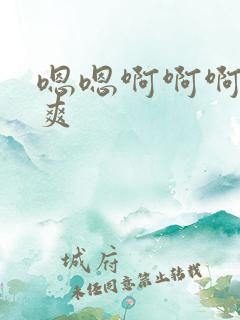 嗯嗯啊啊啊
爽
城府
未经同意禁止转载